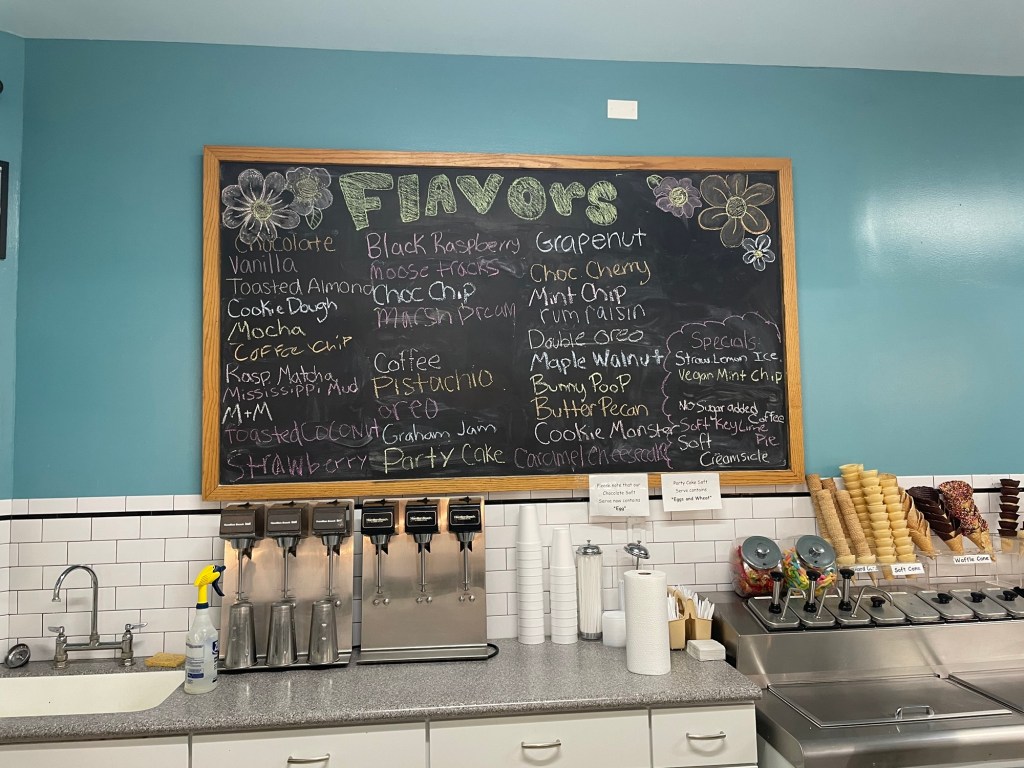 Flavors
Chocolate
Vanilla
Toasted Almond
Cookie Dough
Mocha
Coffee Chip
Rasp. Matcha
Mississippi Mud
M+M
Toasted Coconut
Strawberry
Black Raspberry
Moose tracks
Choc Chip
Marsh Dream
Coffee
Pistachio
oreo
Graham Jam
Party Cake
Grapenut
Choc Cherry
Mint Chip
rum raisin
Double oreo
Maple Walnut
Bunny Poop
Butter Pecan
Cookie Monster
Caramel Cheesecake
Specials:
Straw. Lemon Ice
Vegan Mint Chip
No Sugar added
Coffee
Soft Key Lime
Pie
Soft
Creamsicle
Please note that our
Chocolate Soft
Serve now contains
"Egg"
Party Cake Soft
Serve contains
"Eggs and Wheat"
Soft Cake
Waffle Cone